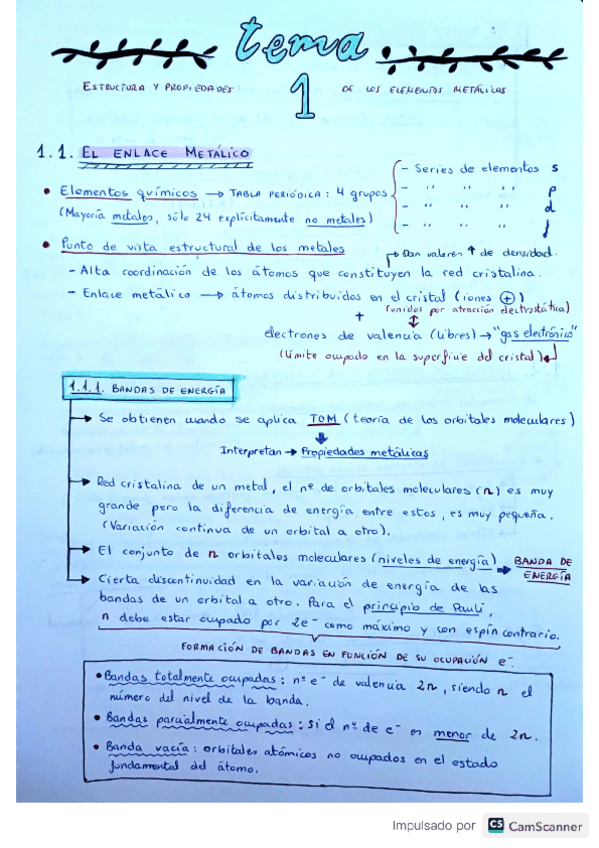 tema
1
ESTRUCTURA Y PROPIEDADES DE LOS ELEMENTOS METÁLICOS
1.1. EL ENLACE METÁLICO
• Elementos químicos → TABLA PERIÓDICA: 4 grupos
- Series de elementos s
- " " " p
- " " " d
- " " " f
(Mayoría metales, sólo 24 explícitamente no metales)
• Punto de vista estructural de los metales
→ Dan valores ↑ de densidad.
- Alta coordinación de los átomos que constituyen la red cristalina.
- Enlace metálico → átomos distribuidos en el cristal (iones ⊕)
+ (unidos por atracción electrostática)
electrones de valencia (libres) → "gas electrónico"
(límite ocupado en la superficie del cristal)
1.1.1. BANDAS DE ENERGÍA
→ Se obtienen cuando se aplica TOM (teoría de los orbitales moleculares)
Interpretan → Propiedades metálicas
→ Red cristalina de un metal, el nº de orbitales moleculares (n) es muy
grande pero la diferencia de energía entre estos, es muy pequeña.
(Variación continua de un orbital a otro).
→ El conjunto de n orbitales moleculares (niveles de energía) → BANDA DE
ENERGÍA
→ Cierta discontinuidad en la variación de energía de las
bandas de un orbital a otro. Para el principio de Pauli,
n debe estar ocupado por 2e⁻ como máximo y con espín contrario.
FORMACIÓN DE BANDAS EN FUNCIÓN DE SU OCUPACIÓN e⁻.
• Bandas totalmente ocupadas: nº e⁻ de valencia 2n, siendo n el
número del nivel de la banda.
• Bandas parcialmente ocupadas: Si el nº de e⁻ es menor de 2n.
• Banda vacía: orbitales atómicos no ocupados en el estado
fundamental del átomo.
Impulsado por CS CamScanner